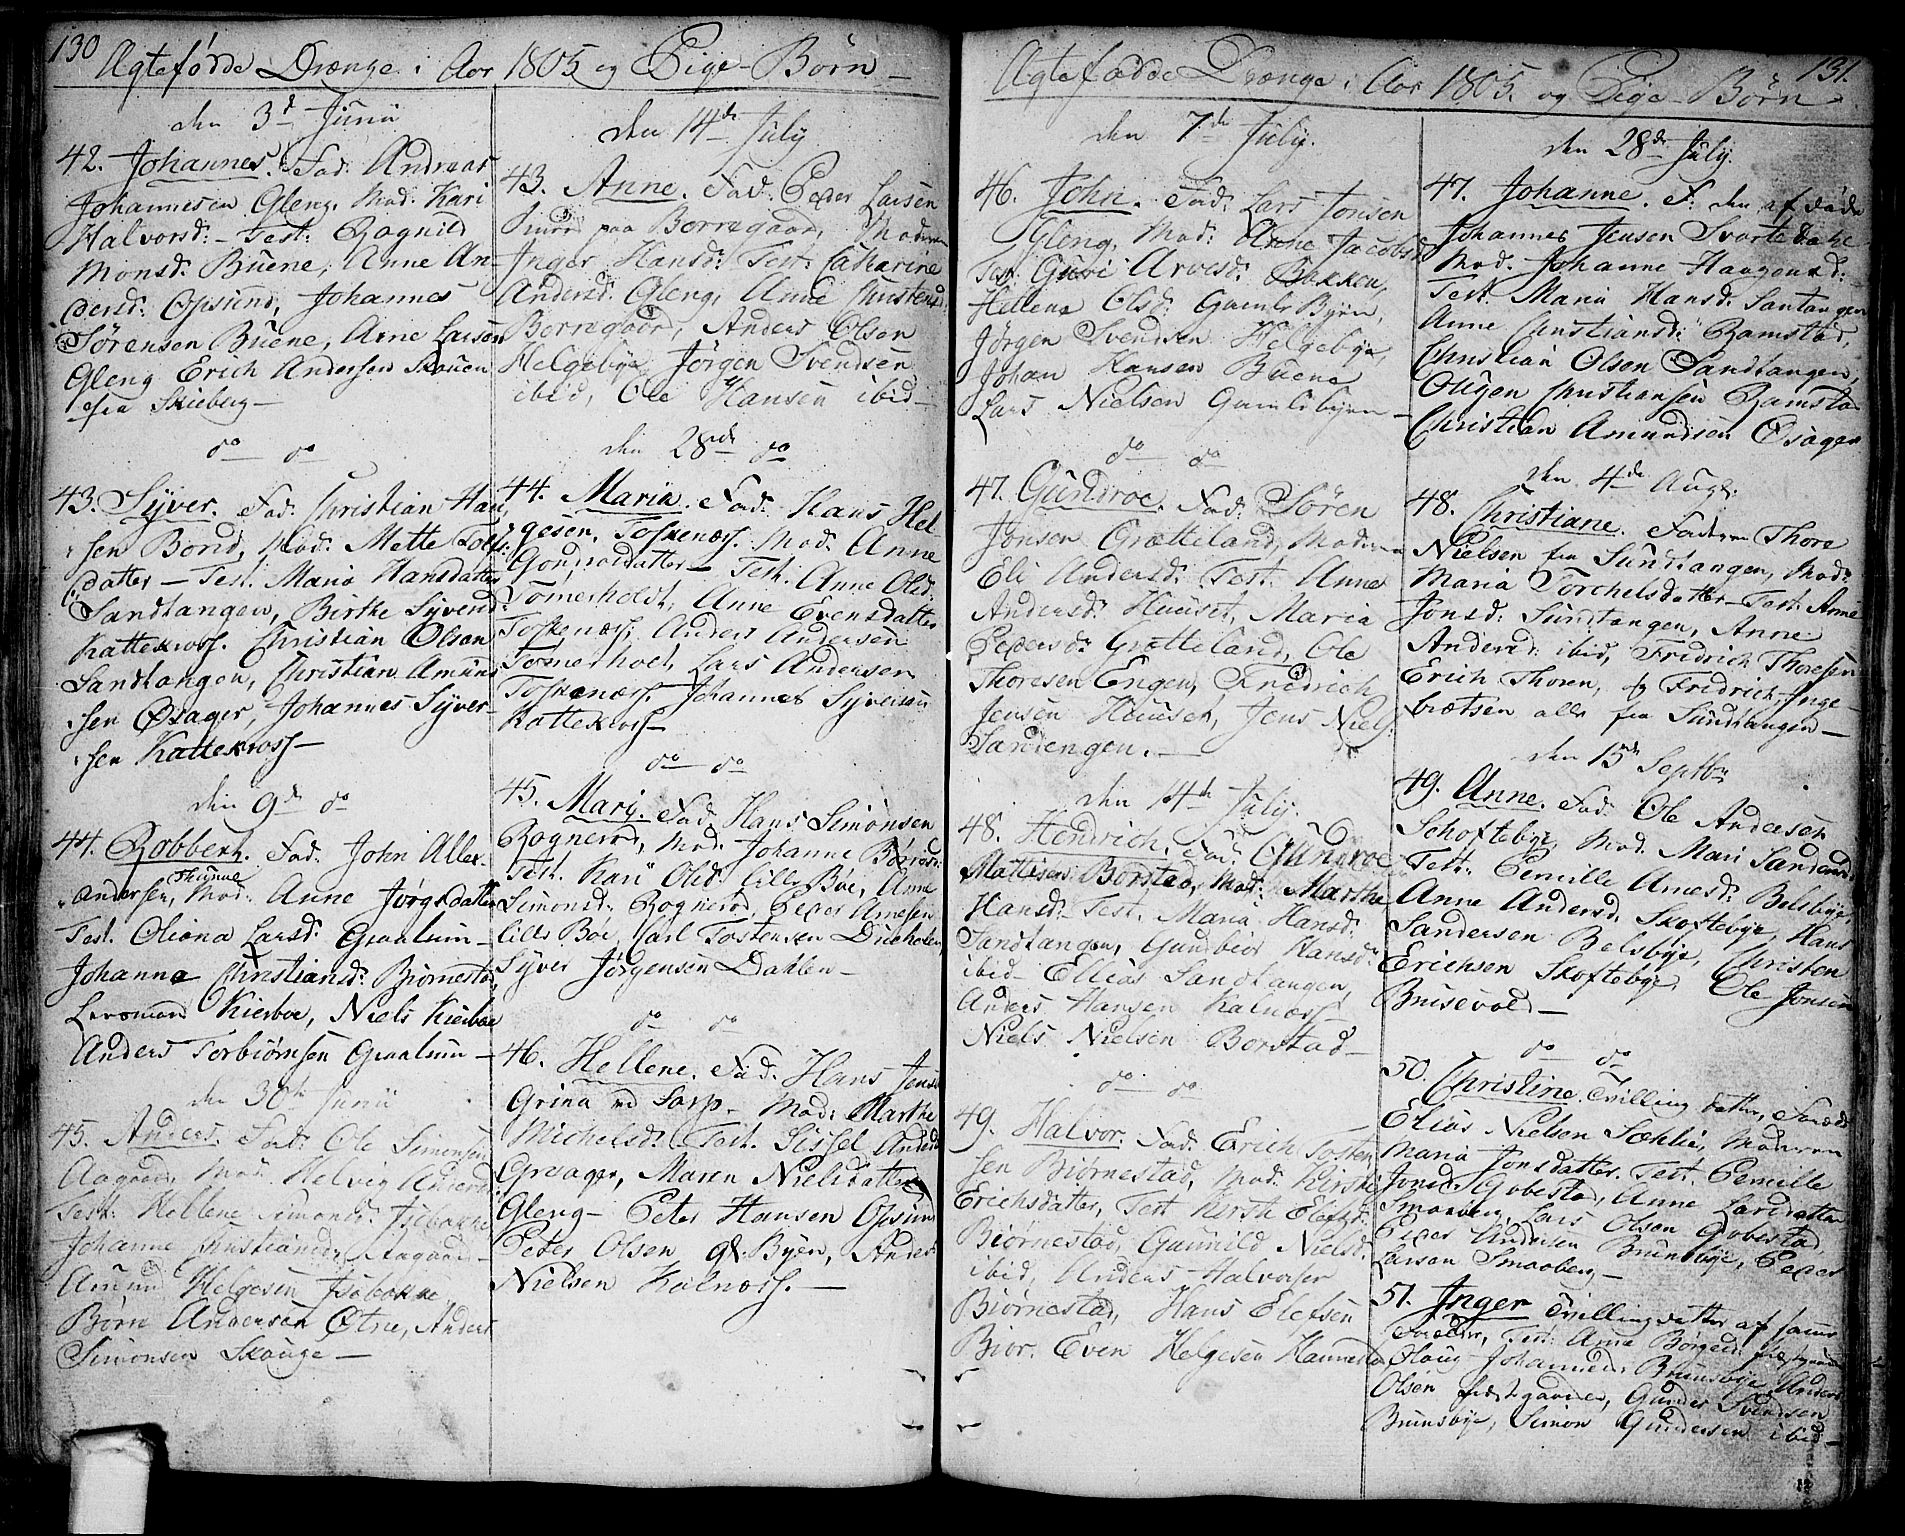 130
Ægteførde Drænge i Aar 1805 og Pige-Børn
den 3d Junii
42. Johannes. Fad: Andreas
Johannesen Gleng, Mod: Kari
Halvorsd: - Test: Ragnild
Monsd: Buene, Anne An-
dersd: Opsund, Johannes
Sørensen Buene, Arne Larsen
Gleng Erich Andersen Skouen
fra Skieberg -
do do
43. Syver. Fad: Christian Han-
sen Bond, Mod: Mette Tolfs:
datter - Test. Maria Hansdatter
Sandtangen, Birthe Syversd:
Katterross. Christian Olsen
Sandtangen, Christian Amund
sen Øsager, Johannes Syver-
sen Katterross -
den 9d do
44. Robbert. Fad. John Allex-
andersen, Thiune Mod: Anne Jørgsdatter
Test. Oliana Larsd: Graalum -
Johanna Christiansd: Biørnestad,
Kierboe, Niels Kierboe
Anders Torbiørnsen Graalum -
den 30te Junii
45. Anders. Fad: Ole Simonsen
Aagaard, Mod: Helvig Andersd:
Test: Hellene Simonsd: Isebakke
Johanne Christiansd: Aagaard -
Amund Helgesen Isebakke
Børn Andersen Øtne, Anders
Simonsen Skouge -
den 14de July
43. Anne. Fad. Peder Larsen
Smed paa Borregaard, Moderen
Inger Hansd: Test: Catharine
Andersd: Gleng, Anne Christensd:
Borregaard, Anders Olsen
Helgebye Jørgen Svendsen
ibid, Ole Hansen ibid -
den 28de do
44. Maria. Fad: Hans Hel-
gesen, Toskenæss. Mod. Anne
Gondersdatter - Test. Anne Olsd.
Tomerholdt, Anne Evensdatter
Toskenæss, Anders Andersen
Tomerholt, Lars Andersen
Toskenæss Johannes Syversen
Katterross -
do do
45. Mari. Fad. Hans Simonsen
Rognerød, Mod: Johanne
Test. Kari Olsd: Lille Bøe, Anne
Simonsd: Rognerød, Peder Arnesen
Lille Boe Carl Tostensen
Syver Jørgensen Dahlen -
do do
46. Hellene. Fad. Hans Jens:
Grina ved Sarp - Mod: Marthe
Michelsd: - Test. Sissel Andersd:
Greager, Maren Nielsdatter
Gleng - Peter Hansen Opsund
Peter Olsen gl. Byen, Anders
Nielsen Kalnæss. -
131.
Ægtefødde Drænge i Aar 1805 og Pige-Børn
den 7de July.
46. John. Fad: Lars Jonsen
Gleng, Mod: Anne Jacobsd:
Test. Guri Arvesd: Bakken,
Hellene Olsd: Gamle Byen,
Jørgen Svendsen Helgebye,
Johan Hansen Buene
Lars Nielsen Gamlebyen -
do do
47. Gundroe. Fad: Søren
Jonsen Grætteland, Moderen
Eli Andersd: Test: Anne
Andersd: Huuset, Maria
Pedersd: Grætteland, Ole
Thoresen Engen, Fridrich
Jensen Huuset, Jens Niels:
Sandtengen. -
den 14de July.
48. Hendrich. Fad: Gundroe
Mattisen Borsted, Mod: Marthe
Hansd: - Test. Maria Hansd:
Sandtangen, Gundbior Hansd:
ibid - Ellias Sandtangen,
Anders Hansen Kalnæss
Niels Nielsen Borstad -
do do
49. Halvor. Fad: Erich Tosten
sen Biørnestad, Mod: Kirsti
Erichsdatter, Test Kirsti Elefsd:
Biørnestad, Gunnild Nielsd:
ibid, Anders Halvorsen
Biørnestad, Hans Elefsen
Bior. Even Helgesen Hannestad
den 28de July.
47. Johanne. F: den af døde
Johannes Jensen Svartedahl
Mod. Johanne Haagensd:
Test. Maria Hansd: Santangen
Anne Christiansd: Ramstad,
Christian Olsen Sandtangen,
Christiansen Ramstad
Christian Amundsen Øsager
den 4de Augt:
48. Christiane. Faderen Thore
Nielsen fra Sundtangen, Mod:
Maria Torchelsdatter - Test. Anne
Jonsd: Sundtangen, Anne
Andersd: ibid, Fridrich Thoresen
Erich Thoren, og Fridrich Inge-
brætsen alle fra Sundtangen -
den 15de Septbr
49. Anne. Fad: Ole Andersen
Schoftebye, Mod. Mari Sandersd:
Test: Pernille Arnesd: Belsbye,
Anne Andersd: Skoftebye, Hans
Sandersen Belsbye, Christen
Erichsen Skoftebye, Ole Jonsen
Brusevold -
do do
50. Christine. Tvilling datter, Forældre
Elias Nielsen Sæhlie, Moderen
Maria Jonsdatter. Test. Pernille
Jonsd: Gobestad, Anne Larsdatter
Smaaberg, Lars Olsen Gobestad
Peder Andersen Brunsbye, Peder
Larsen Smaaberg, -
51. Inger Tvillingdatter af samme
Forældre, Test: Anne Børgesd:
Johannesd: Brunsbye, Anders
Olsen Gunder Svendsen
Brunsbye, Simon Gundersen ibid -